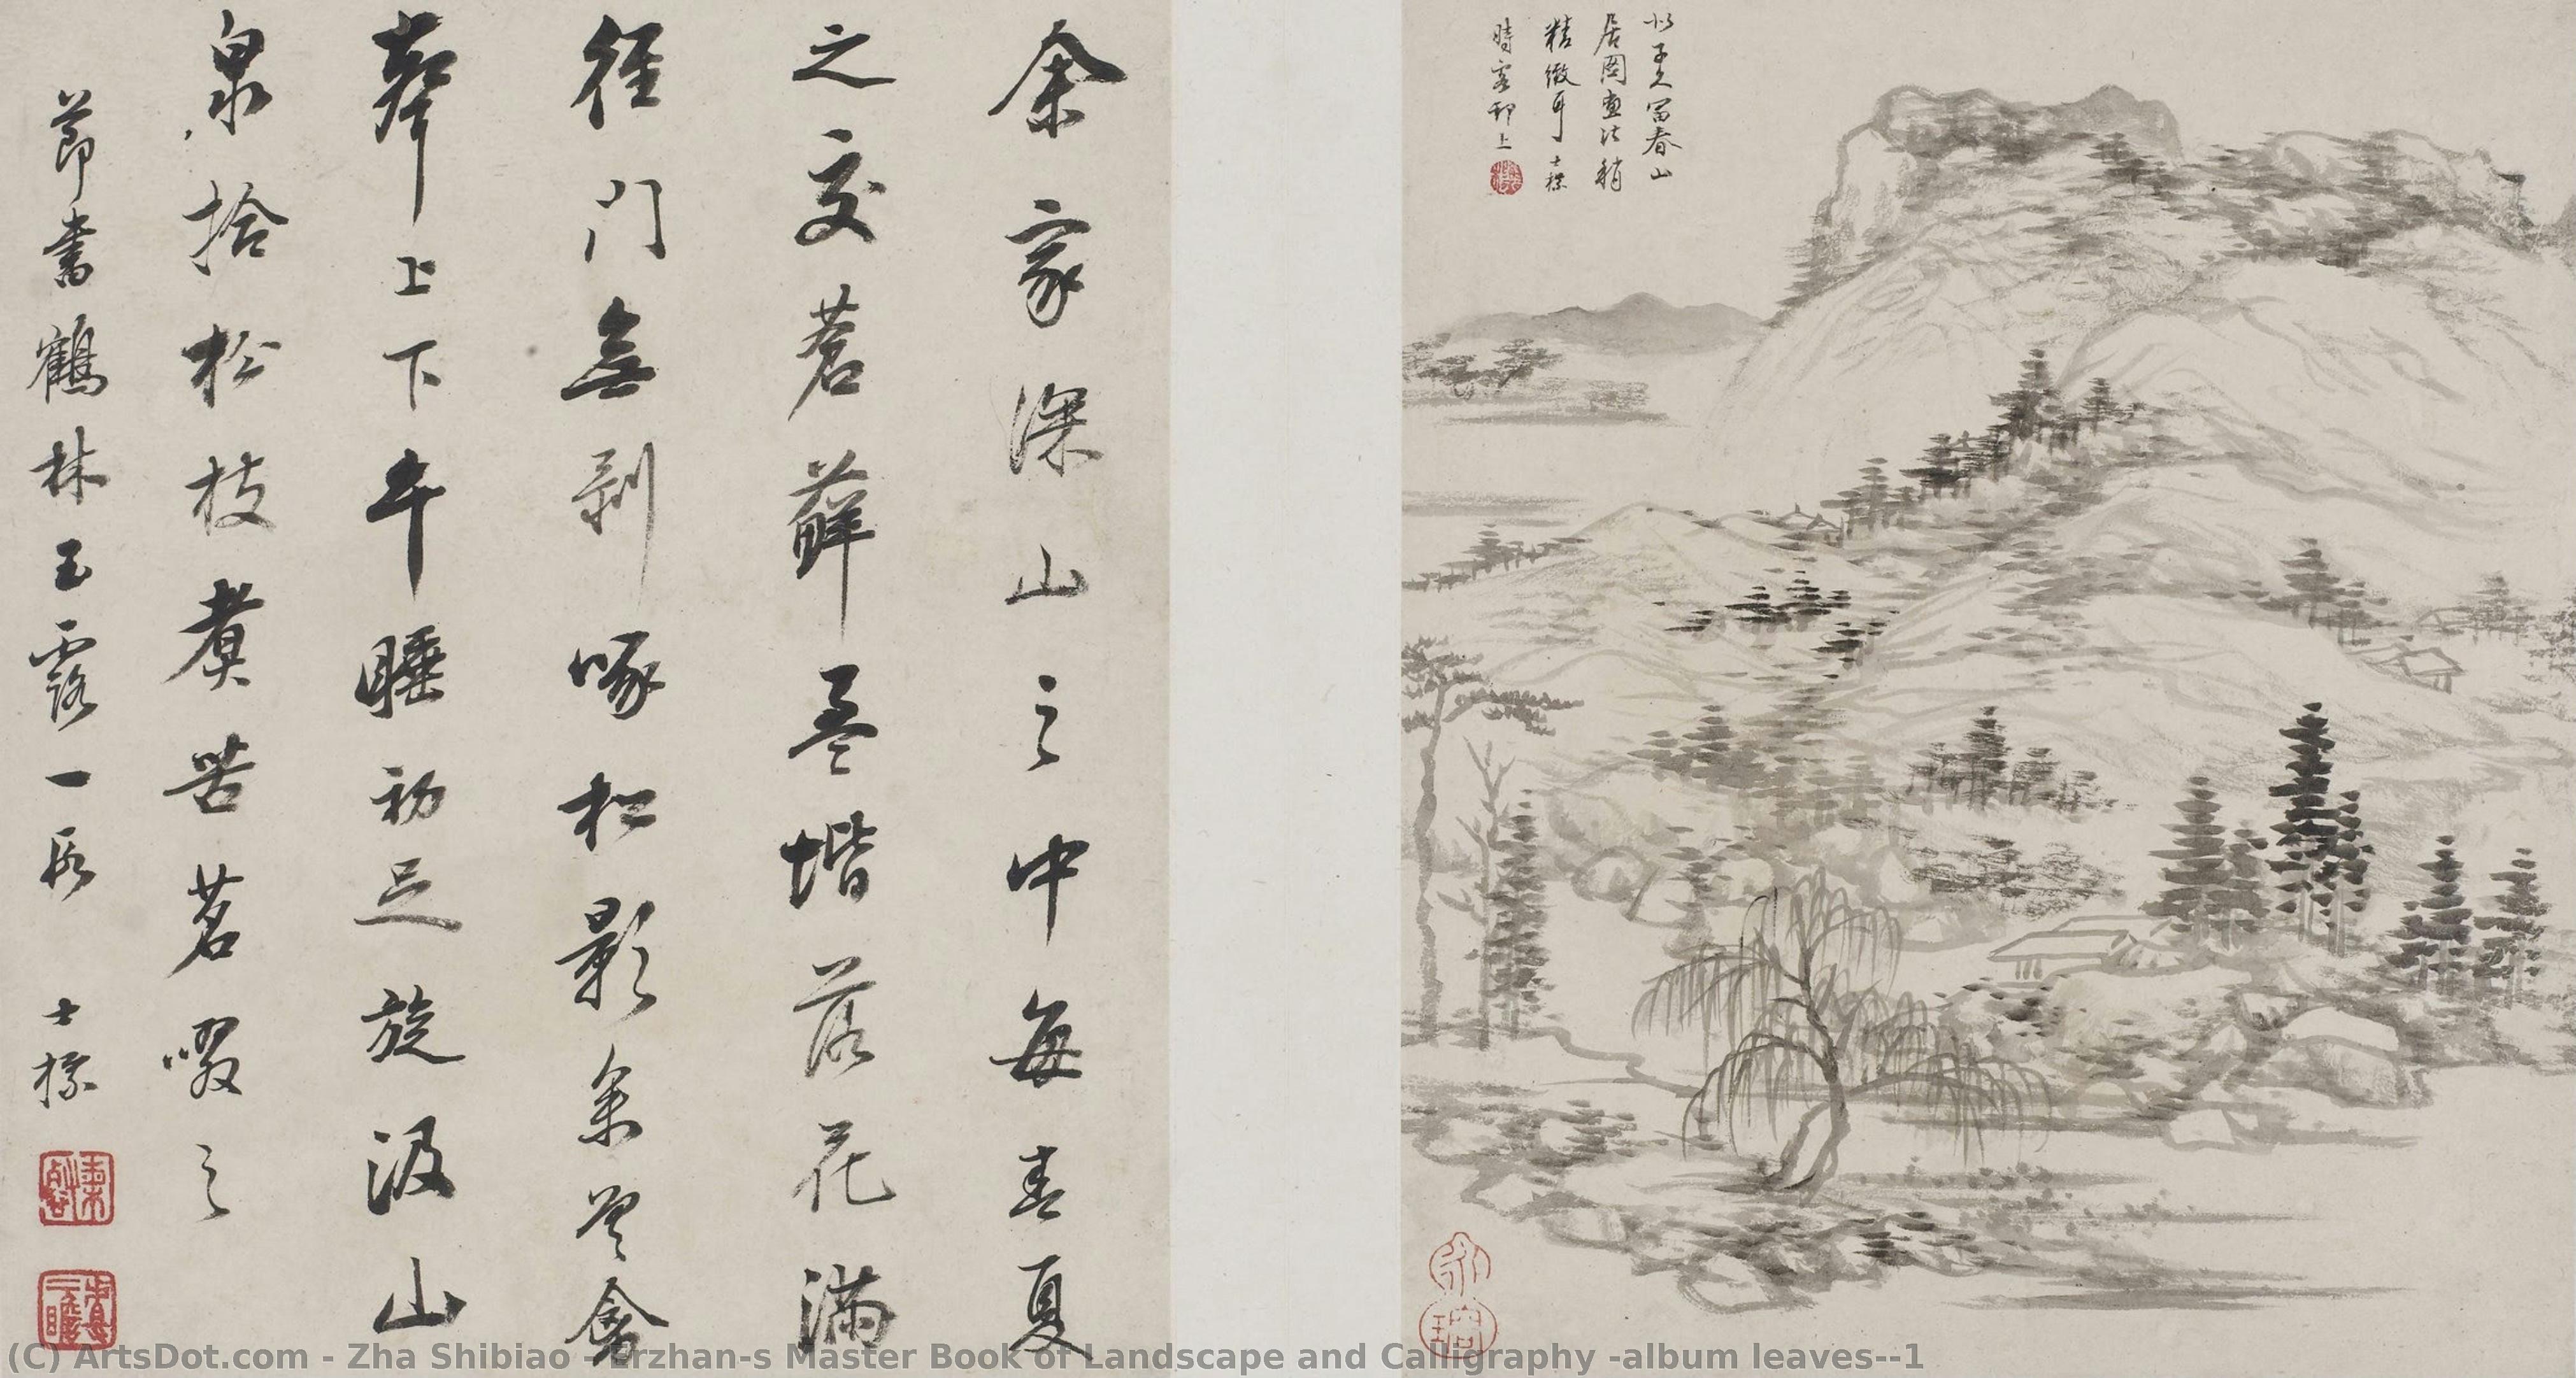 似子久富春山
居圖畫法稍
精緻耳 士標
時客邗上
余家深山之中每春夏
之交蒼蘚盈堦落花滿
徑門無剝啄松影參差禽
聲上下午睡初足旋汲山
泉拾松枝煮苦茗啜之
節書鶴林玉露一段 士標
(C) ArtsDot.com - Zha Shibiao - Erzhan-s Master Book of Landscape and Calligraphy -album leaves--1